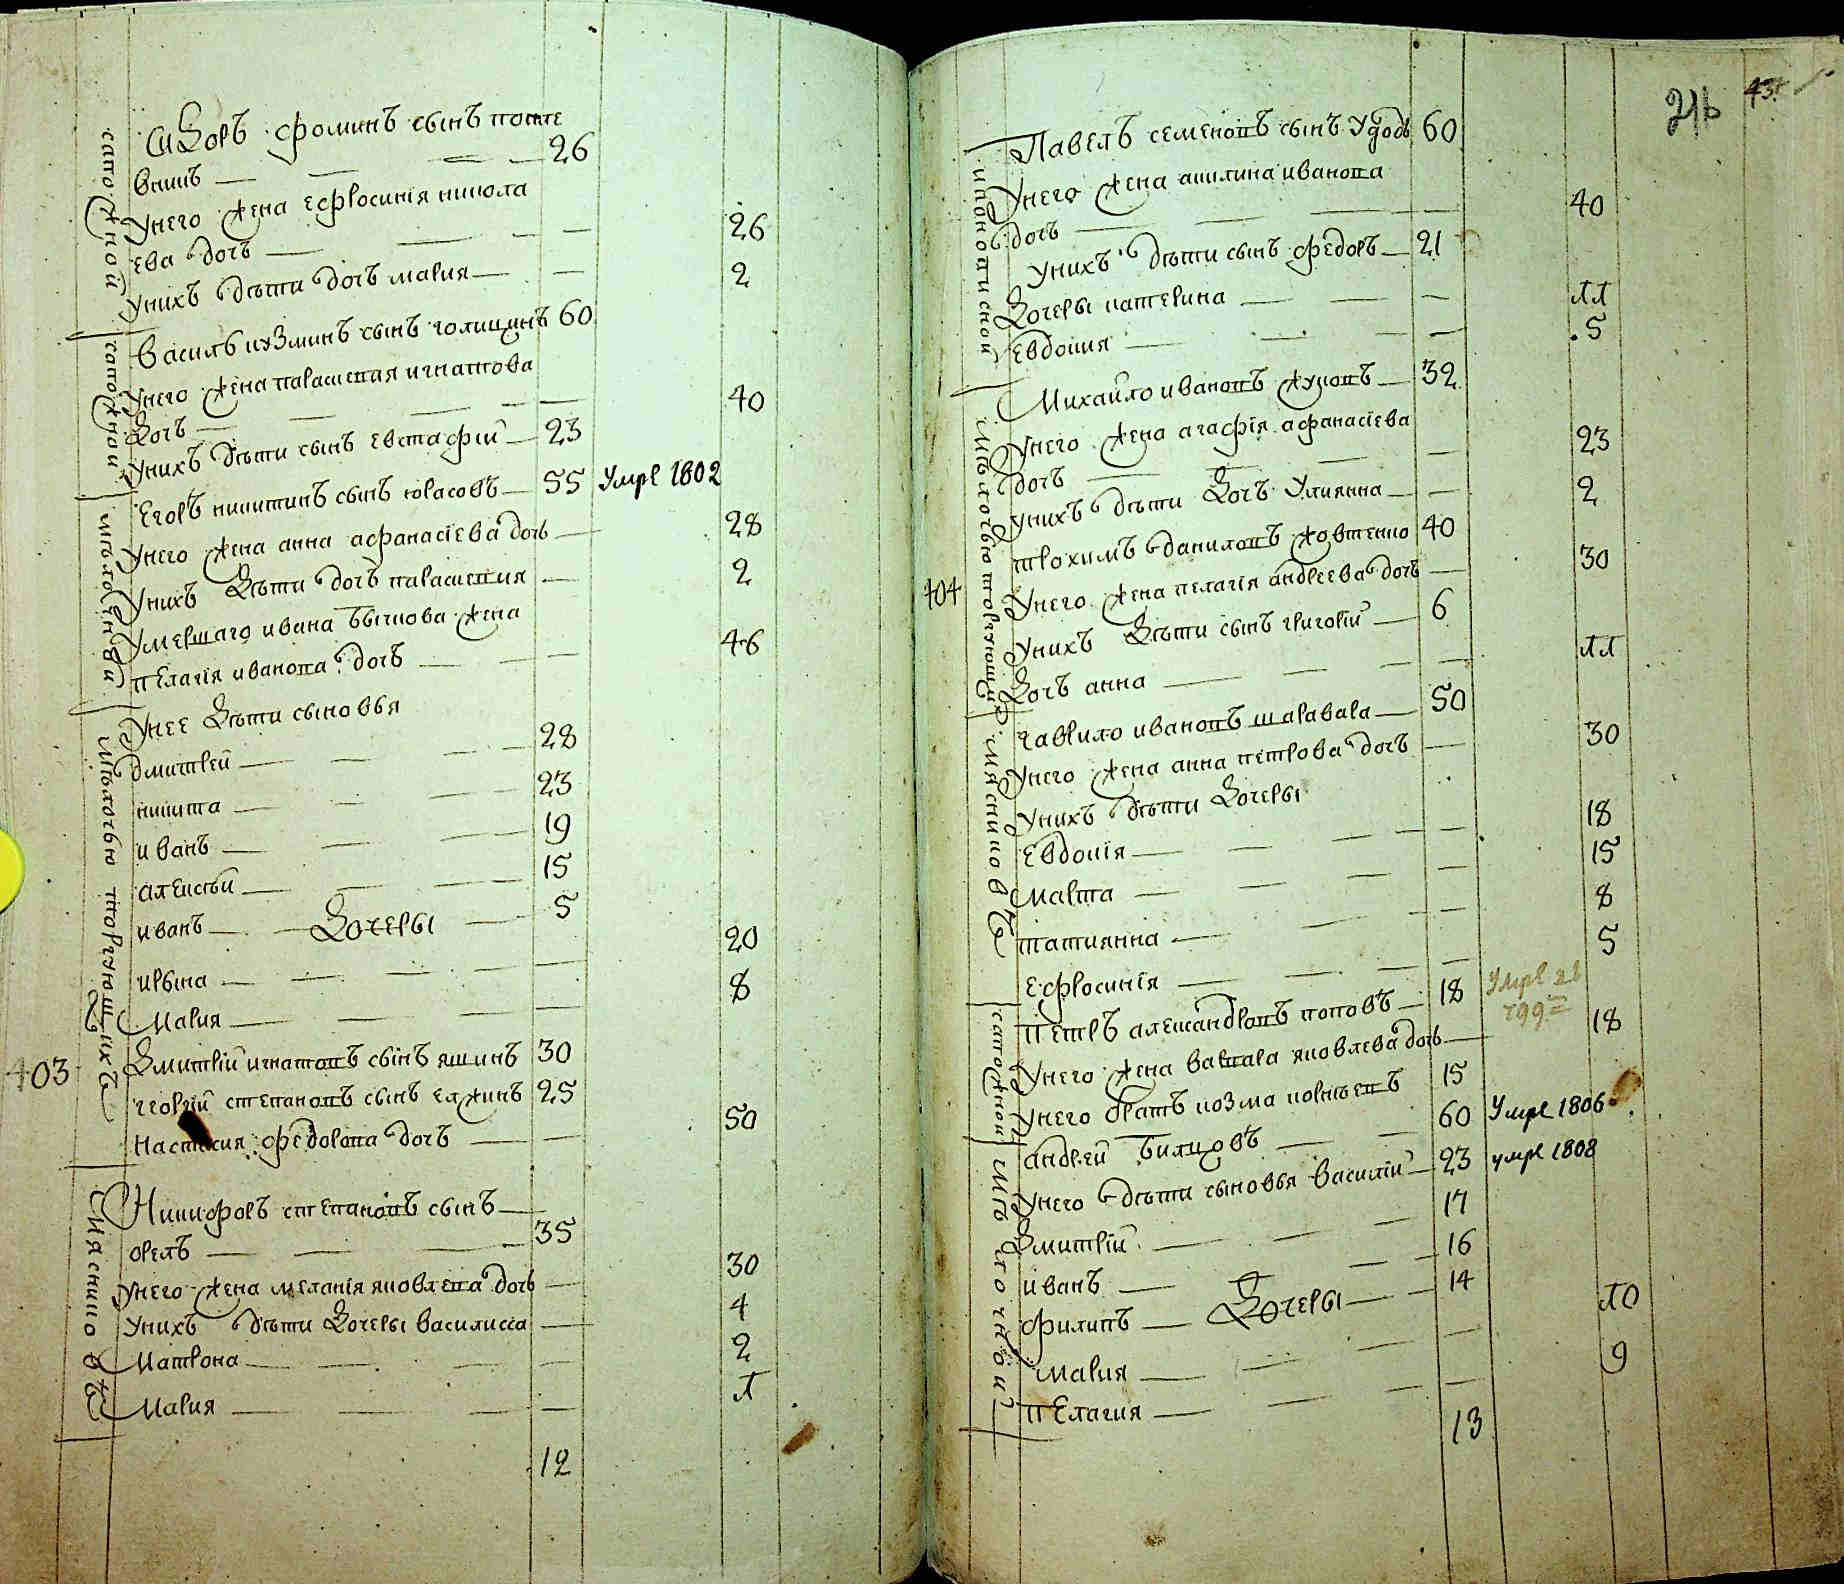 сапожной
Сидоръ фоминъ сынъ
26
внинъ
Унего жена ефросиния никола
ева дочь
26
Унихъ дѣти дочь мария
2
сапожной
Василь кузминъ сынъ голицинъ 60
Унего жена параскевия игнатова
дочь
40
Унихъ дѣти сынъ евстафий 23
Егоръ никитинъ сынъ юрасовъ 55 Умре 1802
Унего жена анна афанасіева дочь
28
Унихъ дѣти дочь параскевия
2
Умершаго ивана бычкова жена
пелагія иванова дочь
46
мѣлочью торгующихъ
Унее дѣти сыновья
дмитрей
28
никита
23
иванъ
19
алексѣй
15
иванъ
5
дочеры
ирына
20
Мария
8
403
Дмитрий игнатовъ сынъ яшинъ 30
георгий степановъ сынъ елжинъ 25
настасия федорова дочь
50
Мяснико въ
Никифоръ степановъ сынъ
орелъ
35
Унего жена меланія яковлева дочь
30
Унихъ дѣти дочеры василисса
4
Матрона
2
Мария
1
12
216
Павелъ семеновъ сынъ Удодъ 60
Унего жена акилина иванова
дочь
40
Унихъ дѣти сынъ федоръ 21
Дочеры катерина
11
евдокия
5
Михайло ивановъ жуковъ 32
Унего жена агафія афанасіева
дочь
23
Унихъ дѣти дочь Улиянна
2
мѣлочью торгующихъ
трохимъ даниловъ жовтенко 40
404
Унего жена пелагія андреева дочь
30
Унихъ дѣти сынъ григорій 6
Дочь анна
11
гаврило ивановъ шаравара 50
Унего жена анна петрова дочь
30
Мясниковъ
Унихъ дѣти дочеры
евдокія
18
Марта
15
татиянна
8
ефросиния
5
сапожной
петръ александровъ поповъ 18
Унего жена варвара яковлева дочь
18
Унего братъ козма корнѣевъ 15
андрей билцовъ 60 Умре 1806
Унего дѣти сыновья василій 23 умре 1808
Дмитрій
17
иванъ
16
филипъ
14
Дочеры
мария
10
пелагия
9
13